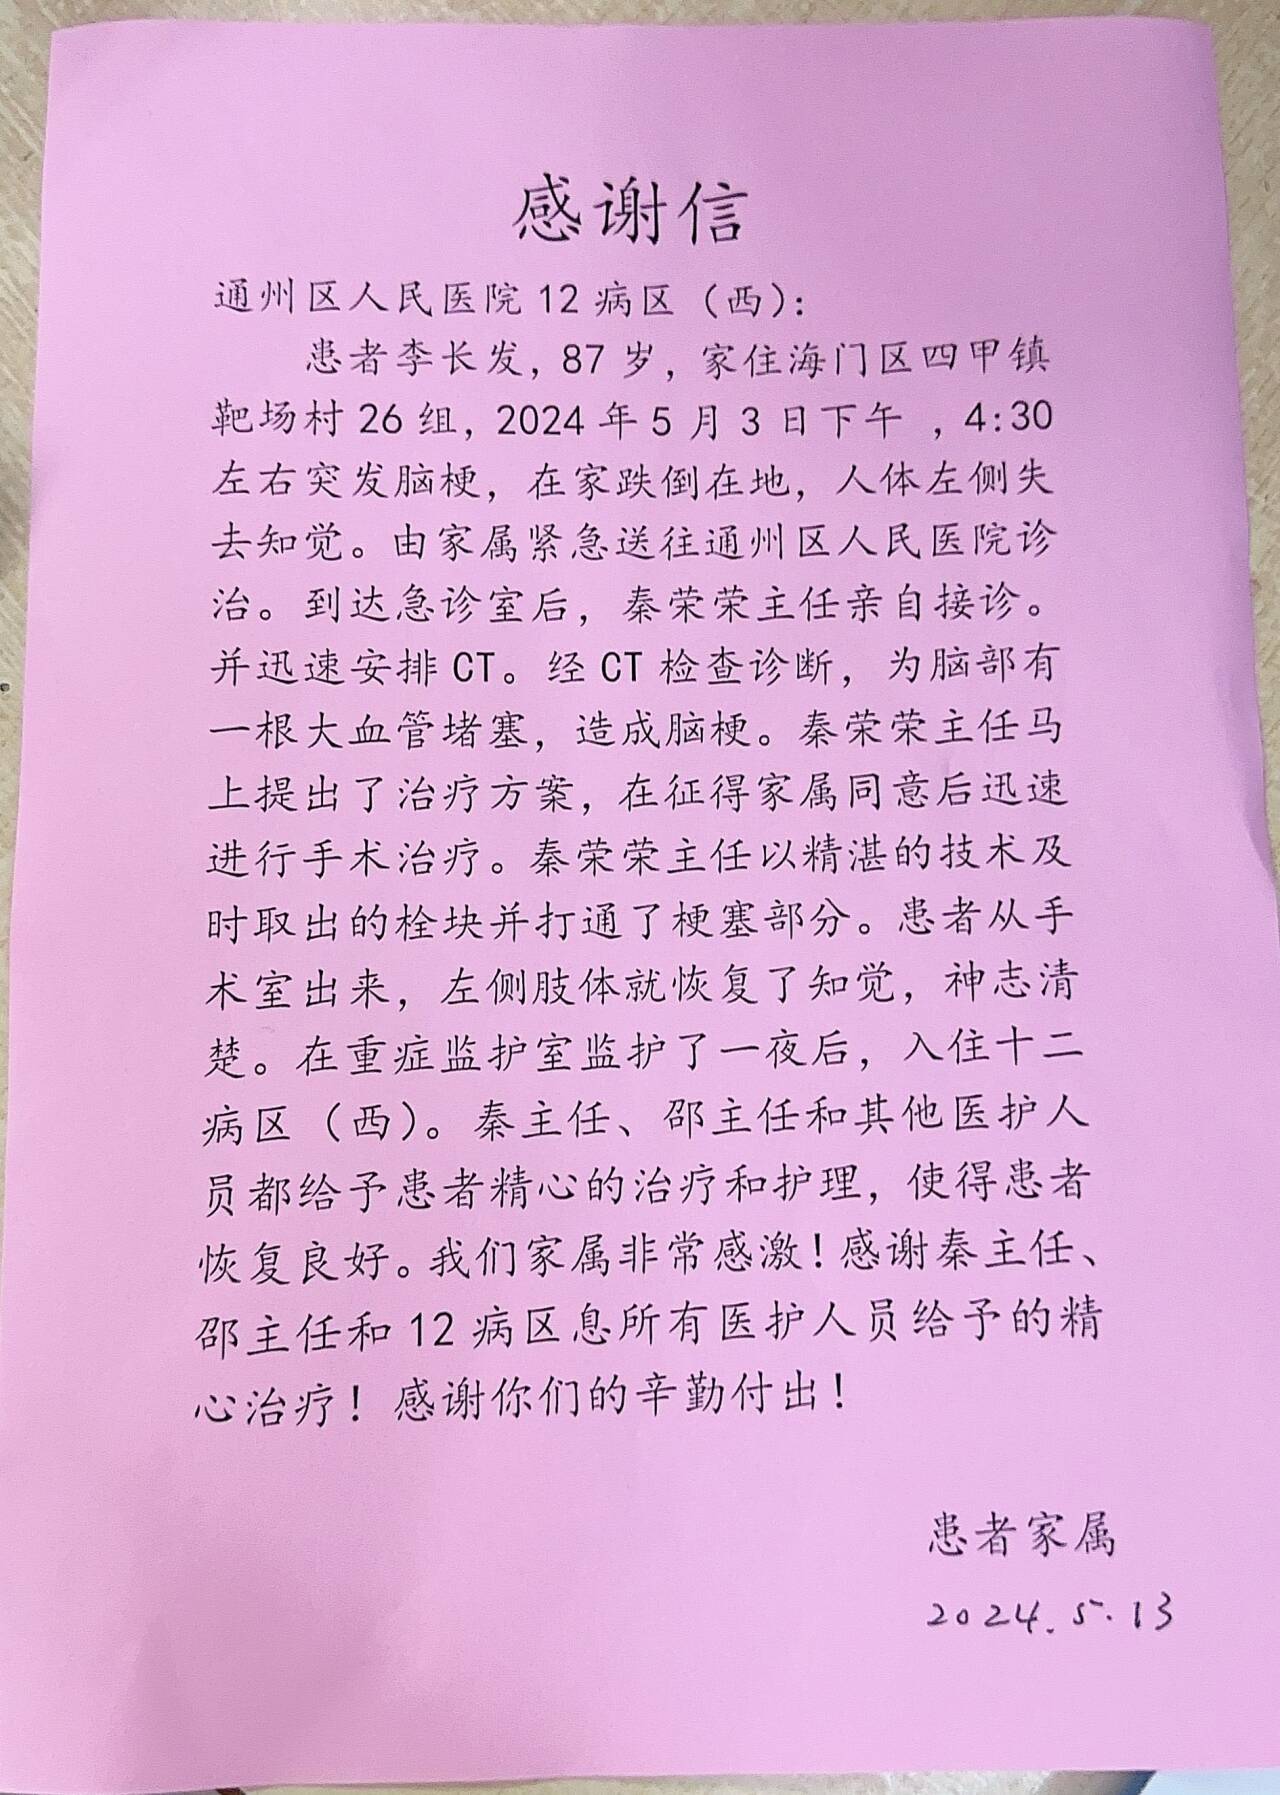 感谢信
通州区人民医院 12 病区（西）：
患者李长发，87 岁，家住海门区四甲镇
靶场村 26 组，2024 年 5 月 3 日下午 ，4:30
左右突发脑梗，在家跌倒在地，人体左侧失
去知觉。由家属紧急送往通州区人民医院诊
治。到达急诊室后，秦荣荣主任亲自接诊。
并迅速安排 CT。经 CT 检查诊断，为脑部有
一根大血管堵塞，造成脑梗。秦荣荣主任马
上提出了治疗方案，在征得家属同意后迅速
进行手术治疗。秦荣荣主任以精湛的技术及
时取出的栓块并打通了梗塞部分。患者从手
术室出来，左侧肢体就恢复了知觉，神志清
楚。在重症监护室监护了一夜后，入住十二
病区（西）。秦主任、邵主任和其他医护人
员都给予患者精心的治疗和护理，使得患者
恢复良好。我们家属非常感激！感谢秦主任、
邵主任和 12 病区息所有医护人员给予的精
心治疗！感谢你们的辛勤付出！
患者家属
2024.5.13